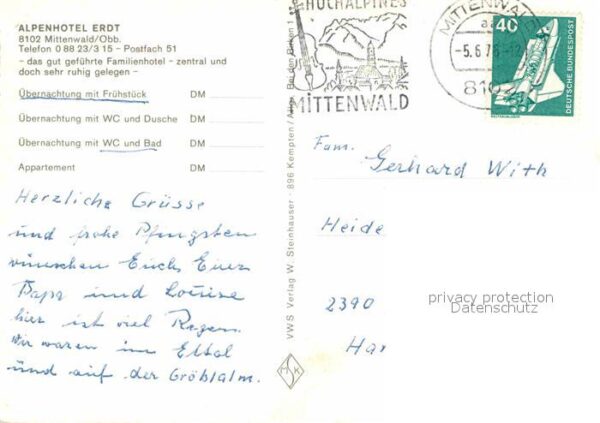 ALPENHOTEL ERDT
8102 Mittenwald/Obb.
Telefon 0 88 23/3 15 - Postfach 51
- das gut geführte Familienhotel - zentral und
doch sehr ruhig gelegen -
Übernachtung mit Frühstück DM
Übernachtung mit WC und Dusche DM
Übernachtung mit WC und Bad DM
Appartement DM
Herzliche Grüsse
und frohe Pfingsten
wünschen Euch Euer
Papa und Louise
hier ist viel Regen.
Wir waren in Ettal
und auf der Gröblalm.
VWS Verlag W. Steinhauser · 896 Kempten / Allg.
HOCHALPINES
MITTENWALD
MITTENWALD
-5.6.76-12
8102
40
DEUTSCHE BUNDESPOST
Fam.
Gerhard With
Heide
2390
Har
privacy protection
Datenschutz